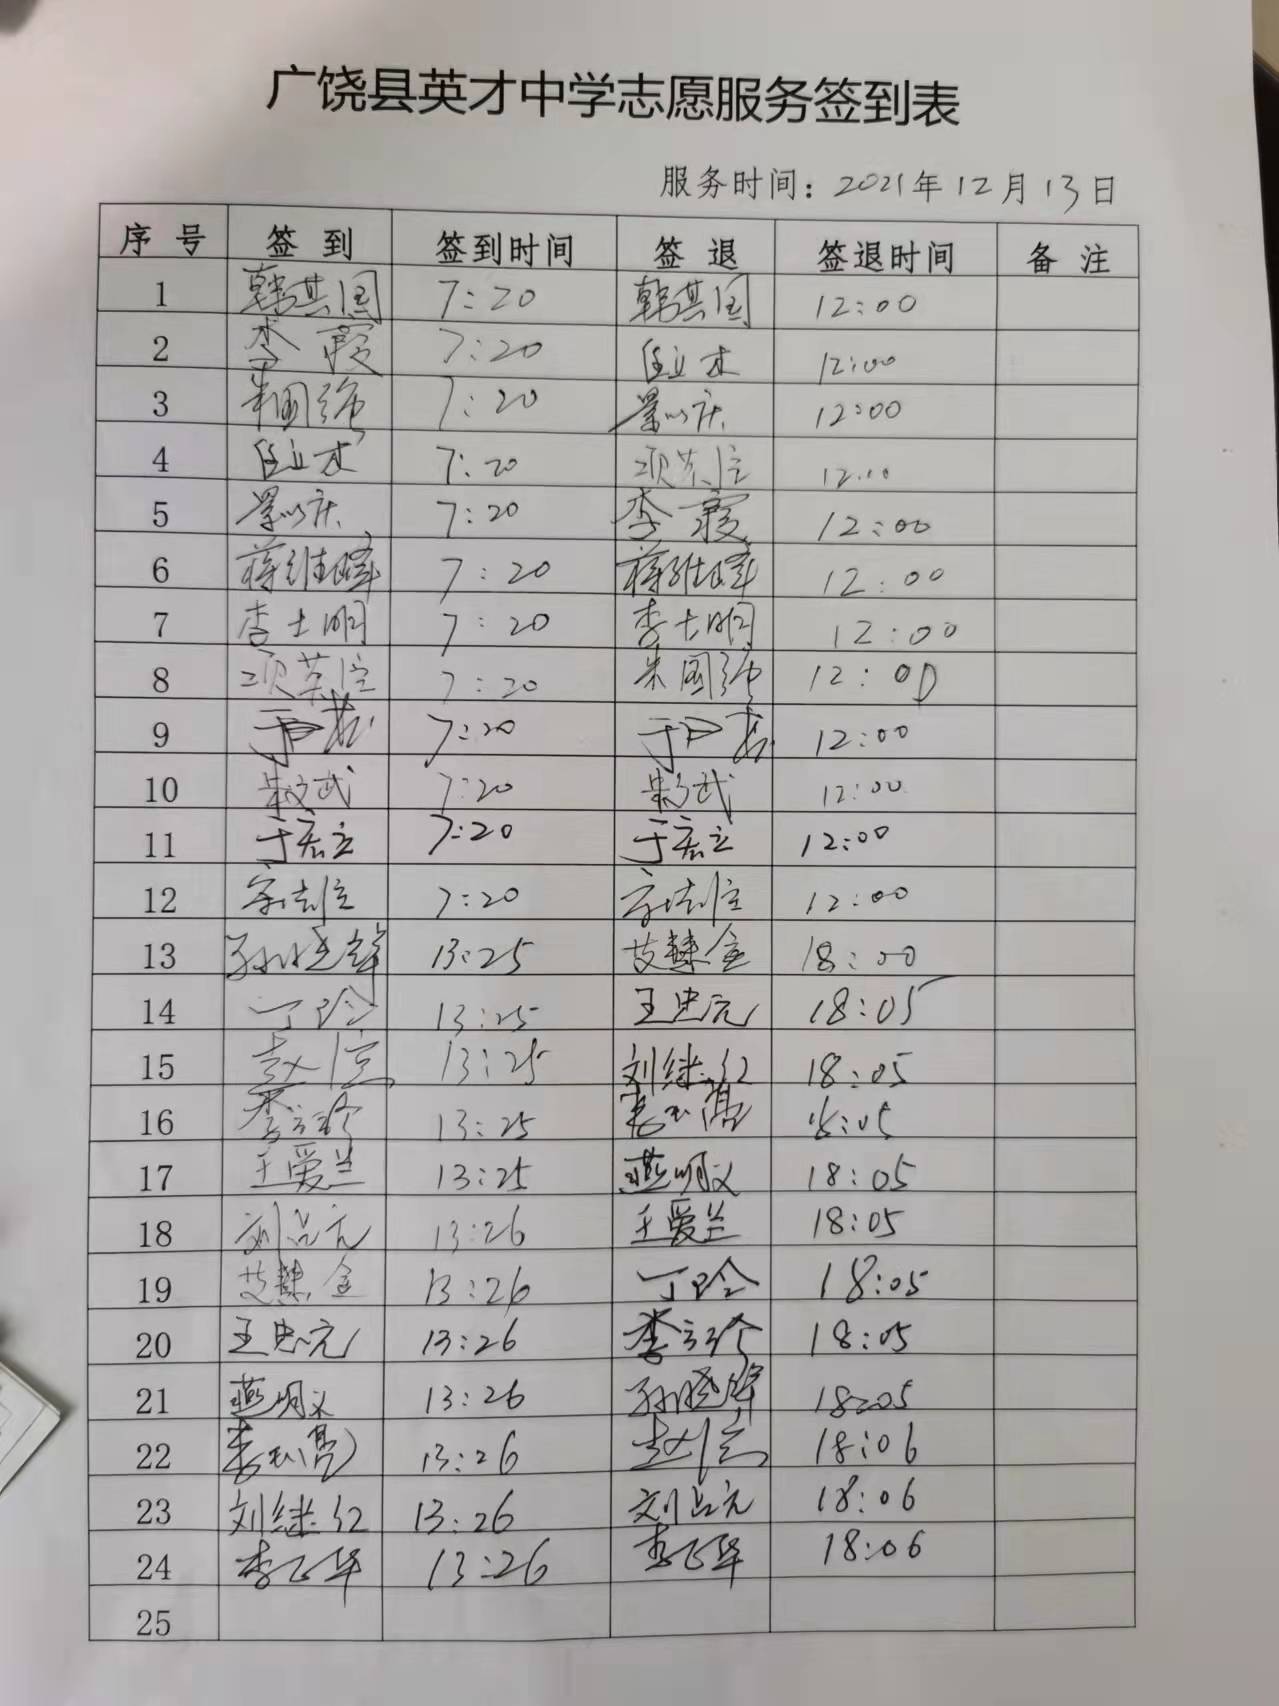 广饶县英才中学志愿服务签到表
服务时间：2021年12月13日
序号 签到 签到时间 签退 签退时间 备注
1 韩其国 7:20 韩其国 12:00
2 李霞 7:20 12:00
3 朱国强 7:20 12:00
4 7:20 项英信 12:00
5 7:20 李霞 12:00
6 蒋维峰 7:20 蒋维峰 12:00
7 李士明 7:20 李士明 12:00
8 项英信 7:20 朱国强 12:00
9 7:20 12:00
10 7:20 12:00
11 于宏立 7:20 于宏立 12:00
12 7:20 12:00
13 孙晓辉 13:25 艾慧金 18:00
14 丁玲 13:25 王忠元 18:05
15 赵信 13:25 刘继红 18:05
16 李立玲 13:25 18:05
17 王爱兰 13:25 燕明文 18:05
18 刘占元 13:26 王爱兰 18:05
19 艾慧金 13:26 丁玲 18:05
20 王忠元 13:26 李立玲 18:05
21 燕明文 13:26 孙晓辉 18:05
22 13:26 赵信 18:06
23 刘继红 13:26 刘占元 18:06
24 李飞华 13:26 李飞华 18:06
25